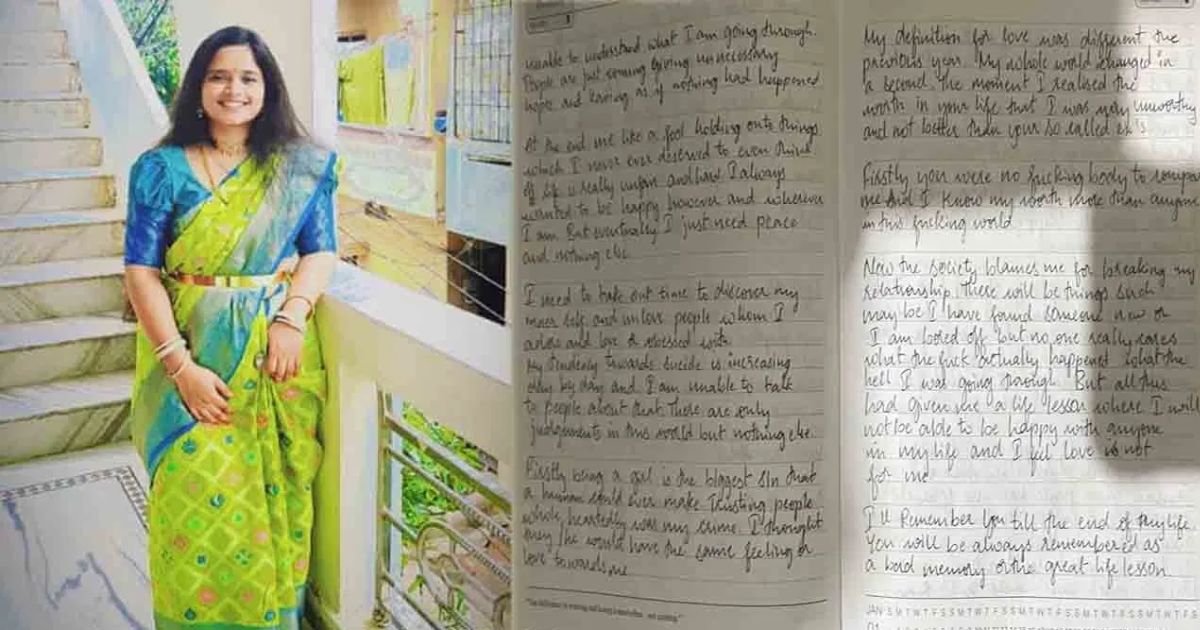 unable to understand what I am going through.
People are just coming giving unnecessary
hopes and leaving as if nothing had happened
At the end me like a fool holding onto things
which I never ever deserved to even think
of life is really unfair and I always
wanted to be happy however and wherever
I am. But eventually I just need peace
and nothing else
I need to take out time to discover my
inner self and unlove people whom I
adore and love & obsessed with
My tendency towards sucide is increasing
day by day and I am unable to talk
to people about that. There are only
judgements in this world but nothing else.
Firstly being a girl is the biggest sin that
a human could ever make. Trusting people
whole heartedly was my crime. I thought
may be he would have the same feeling or
love towards me
My definition for love was different the
previous year. My whole world changed in
a second. the moment I realised the
worth in your life that I was very unworthy
and not better than your so called ex's
Firstly you were no fucking body to compare
me and I know my worth more than anyone
in this fucking world
Now the society blames me for breaking my
relationship. There will be things such
may be I have found someone new or
I am bored off but no one really cares
what the fuck actually happened what the
hell I was going through. But all this
had given me a life lesson where I will
not be able to be happy with anyone
in my life and I feel love is not
for me
I'll Remember You till the end of my life
You will be always remembered as
a bad memory or the great life lesson
JAN S M T W T F S S M T W T F S S M T W T F S S M T W T F S S
01